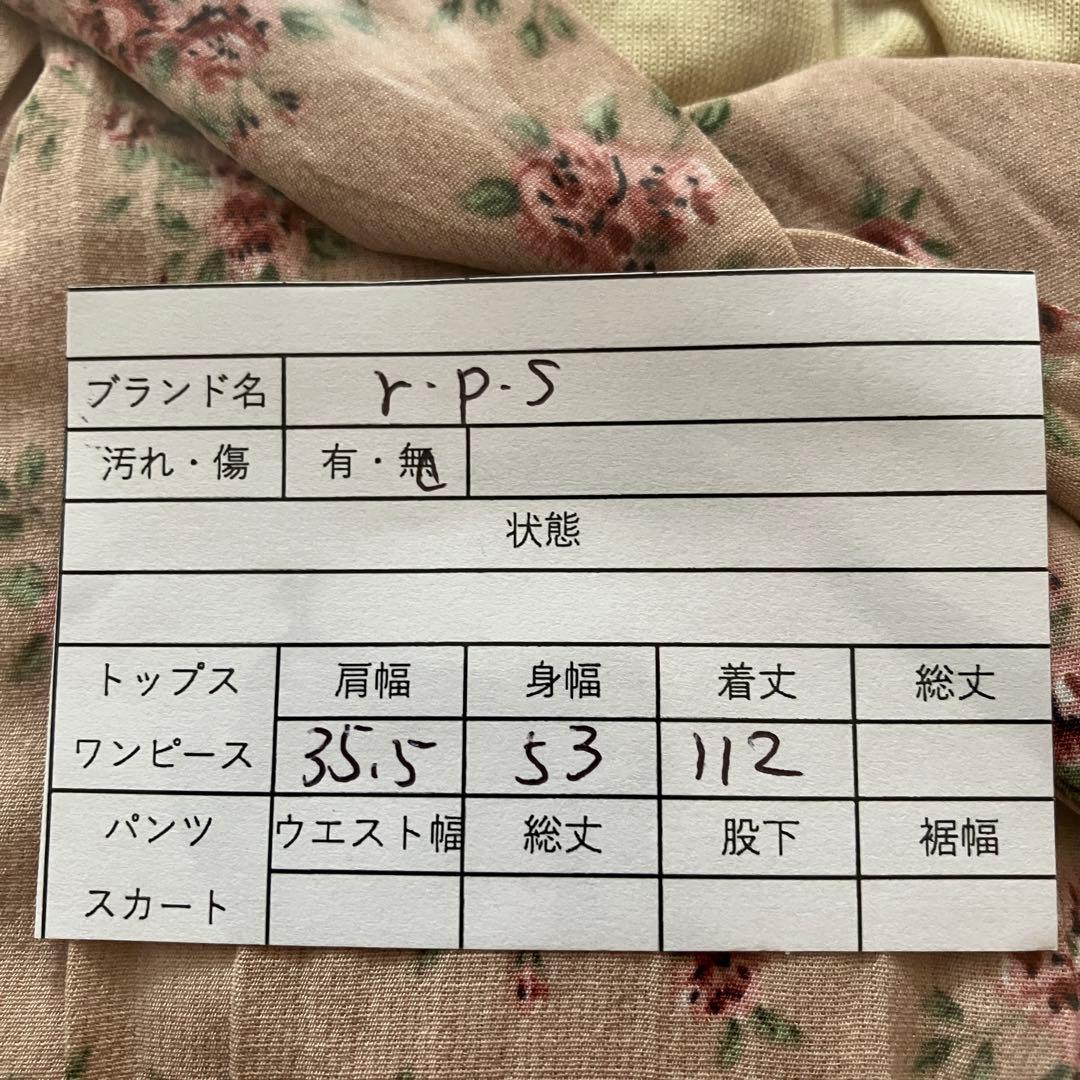 ブランド名 r.p.s
汚れ・傷 有・無
状態
トップス 肩幅 身幅 着丈 総丈
ワンピース 35.5 53 112
パンツ ウエスト幅 総丈 股下 裾幅
スカート